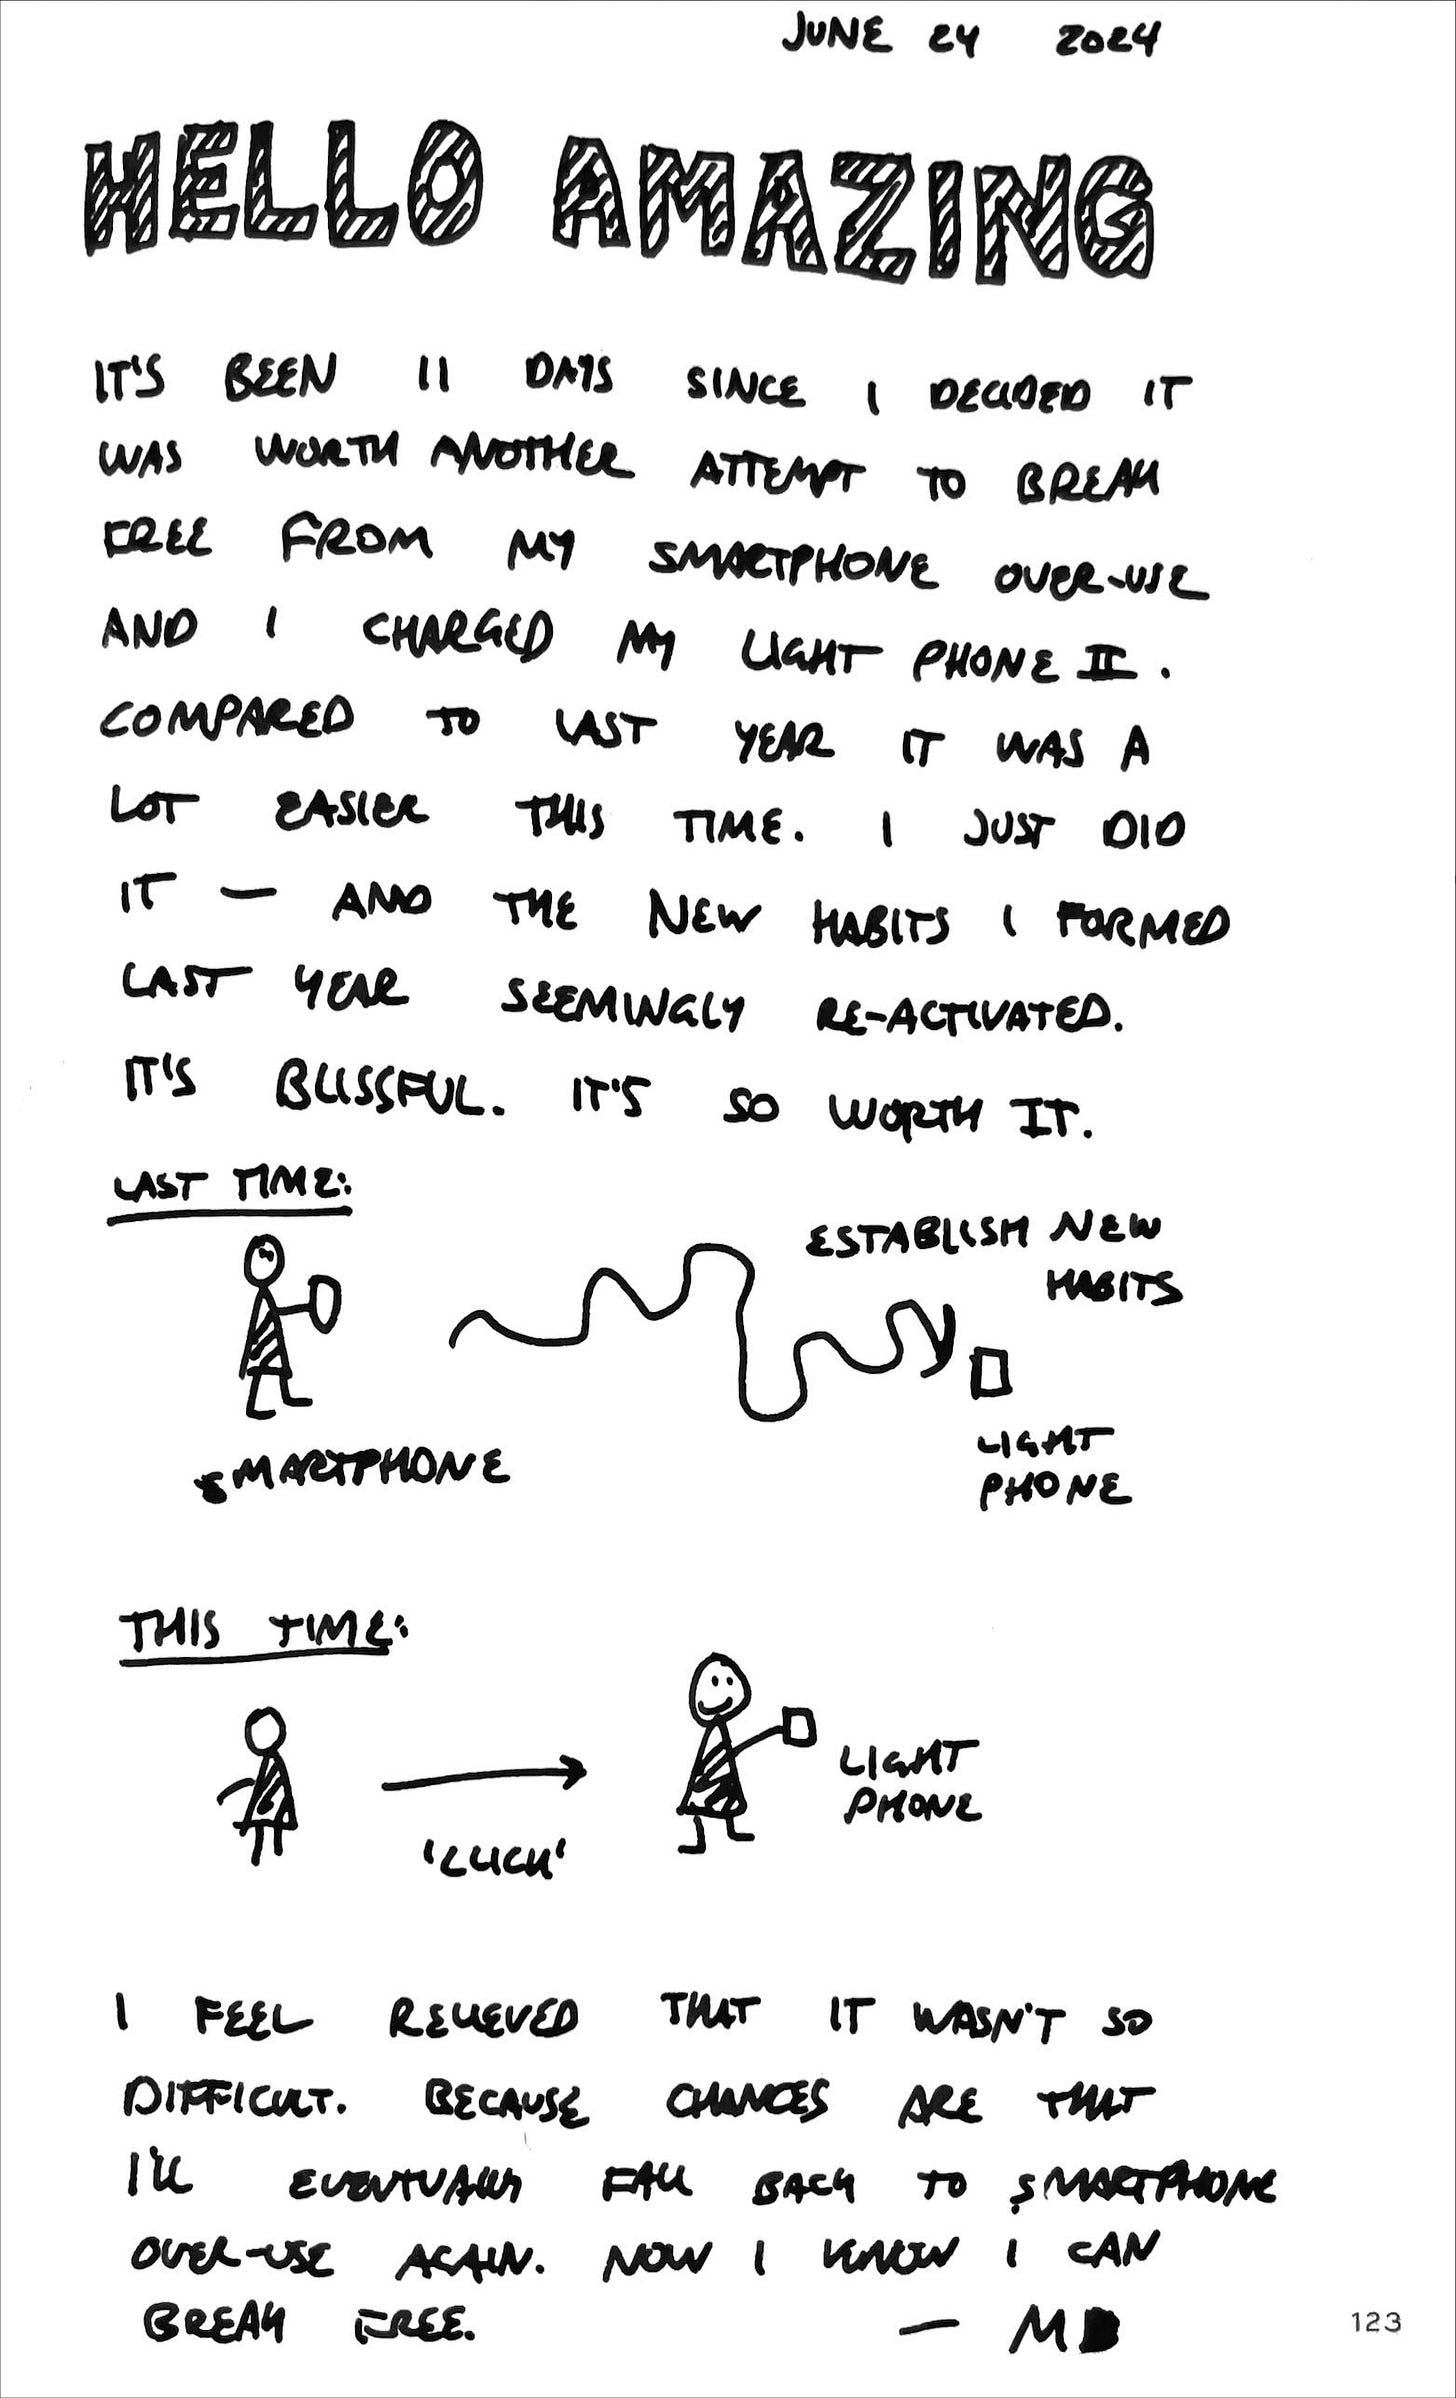 JUNE 24 2024
HELLO AMAZING
IT'S BEEN 11 DAYS SINCE I DECIDED IT
WAS WORTH ANOTHER ATTEMPT TO BREAK
FREE FROM MY SMARTPHONE OVER-USE
AND I CHARGED MY LIGHT PHONE II.
COMPARED TO LAST YEAR IT WAS A
LOT EASIER THIS TIME. I JUST DID
IT — AND THE NEW HABITS I FORMED
LAST YEAR SEEMINGLY RE-ACTIVATED.
IT'S BLISSFUL. IT'S SO WORTH IT.
LAST TIME:
ESTABLISH NEW
HABITS
SMARTPHONE
LIGHT
PHONE
THIS TIME:
LIGHT
PHONE
'CLICK'
I FEEL RELIEVED THAT IT WASN'T SO
DIFFICULT. BECAUSE CHANCES ARE THAT
I'LL EVENTUALLY FALL BACK TO SMARTPHONE
OVER-USE AGAIN. NOW I KNOW I CAN
BREAK FREE. — MD
123